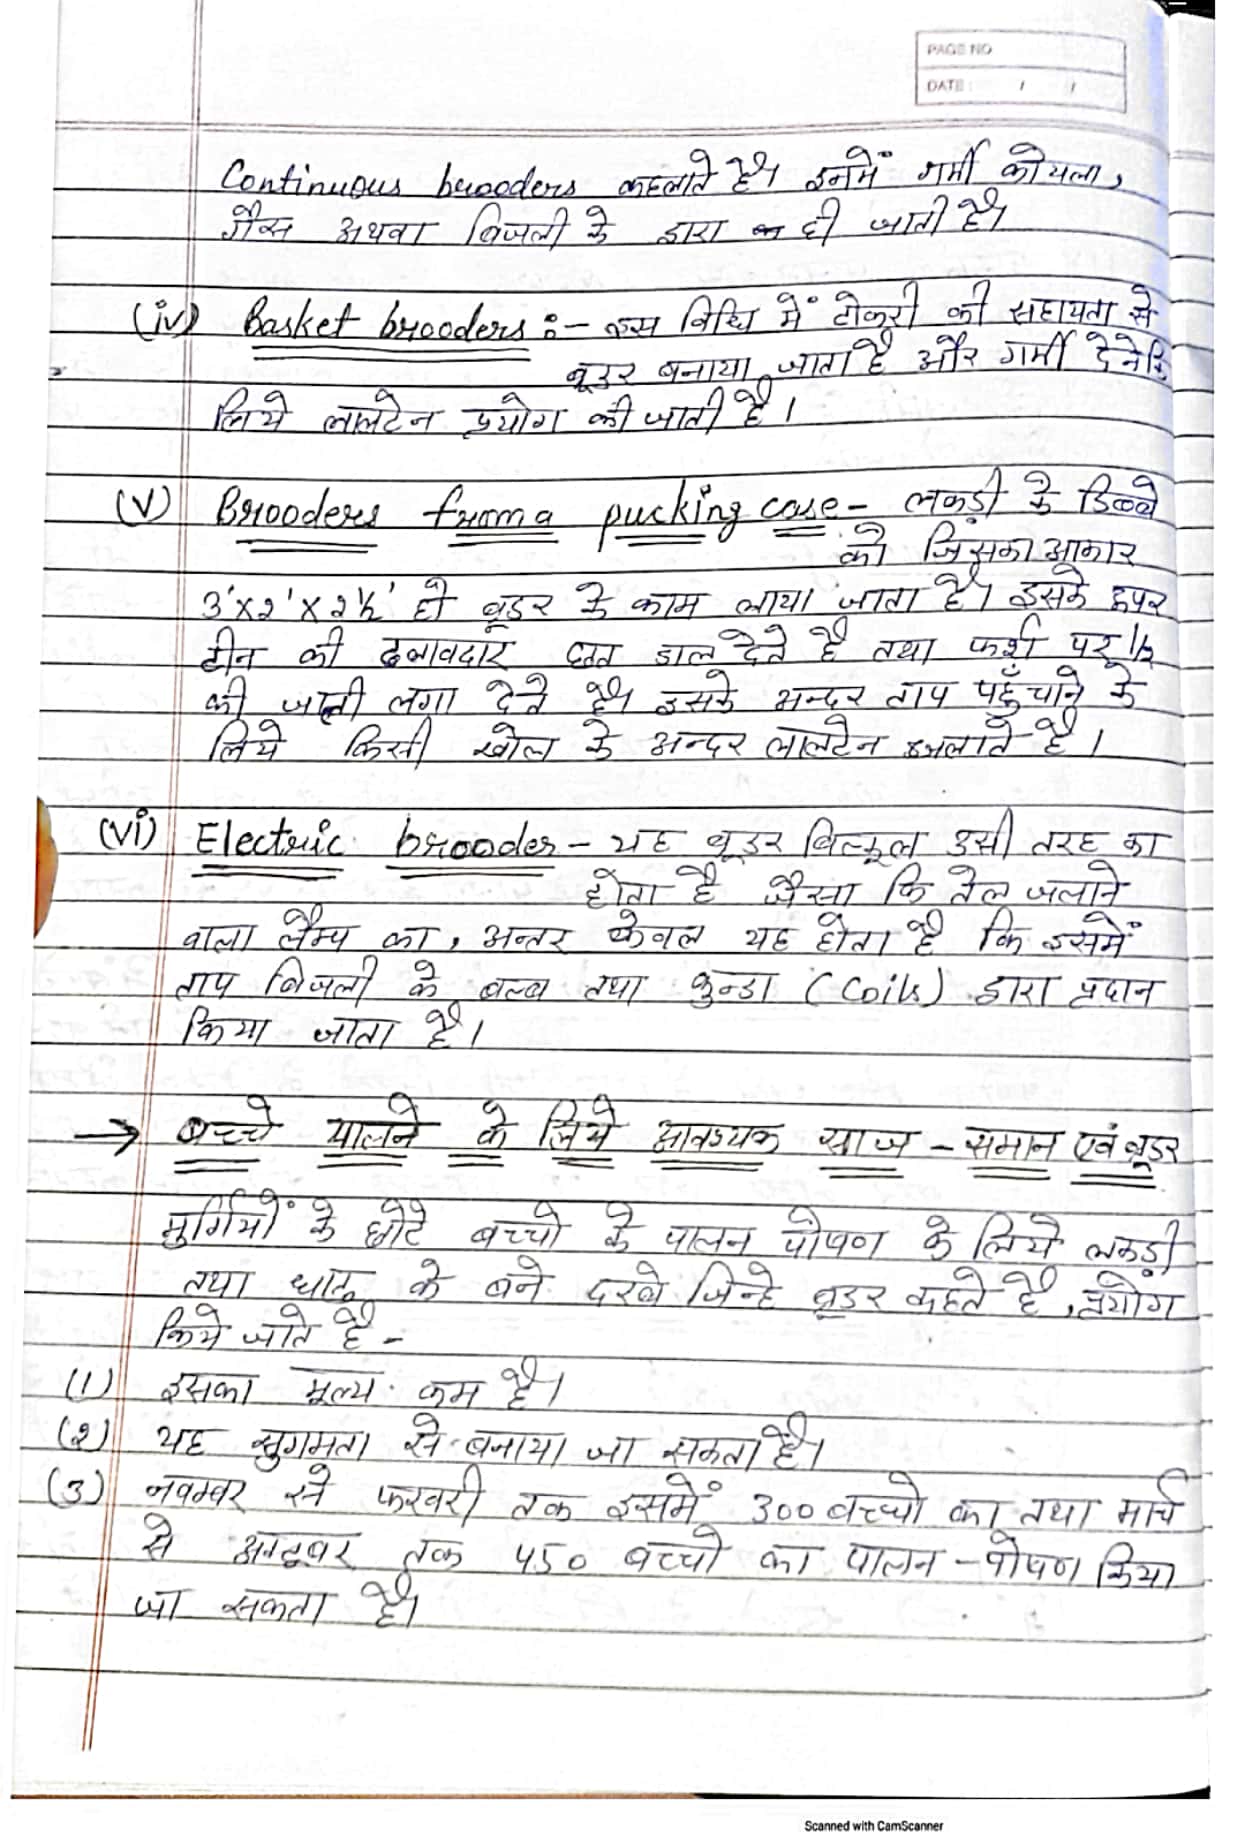 PAGE NO
DATE : / /
Continuous brooders कहलाते है। इनमें गर्मी कोयला,
गैस अथवा बिजली के द्वारा दी जाती है।
(iv) Basket brooders :- इस विधि में टोकरी की सहायता से
ब्रूडर बनाया जाता है और गर्मी देने के
लिये लालटेन प्रयोग की जाती है।
(v) Brooders from a pucking case - लकड़ी के डिब्बे
को जिसका आकार
3'x2'x2½' हो ब्रूडर के काम लाया जाता है। इसके ऊपर
टीन की ढलावदार छत डाल देते है तथा फर्श पर 1/2
की जाली लगा देते है। इसके अन्दर ताप पहुँचाने के
लिये किसी खोल के अन्दर लालटेन जलाते है।
(vi) Electric brooder - यह ब्रूडर बिल्कूल उसी तरह का
होता है जैसा कि तेल जलाने
वाला लैम्प का, अन्तर केवल यह होता है कि इसमें
ताप बिजली के बल्ब तथा कुन्डा (Coils) द्वारा प्रदान
किया जाता है।
→ बच्चे पालने के लिये आवश्यक साज - समान एवं ब्रूडर
मुर्गियों के छोटे बच्चो के पालन पोषण के लिये लकड़ी
तथा धातु के बने दरबे जिन्हे ब्रूडर कहते है, प्रयोग
किये जाते है -
(1) इसका मूल्य कम है।
(2) यह सुगमता से बनाया जा सकता है।
(3) नवम्बर से फरवरी तक इसमें 300 बच्चो का तथा मार्च
से अक्टूबर तक 450 बच्चो का पालन - पोषण किया
जा सकता है।
Scanned with CamScanner